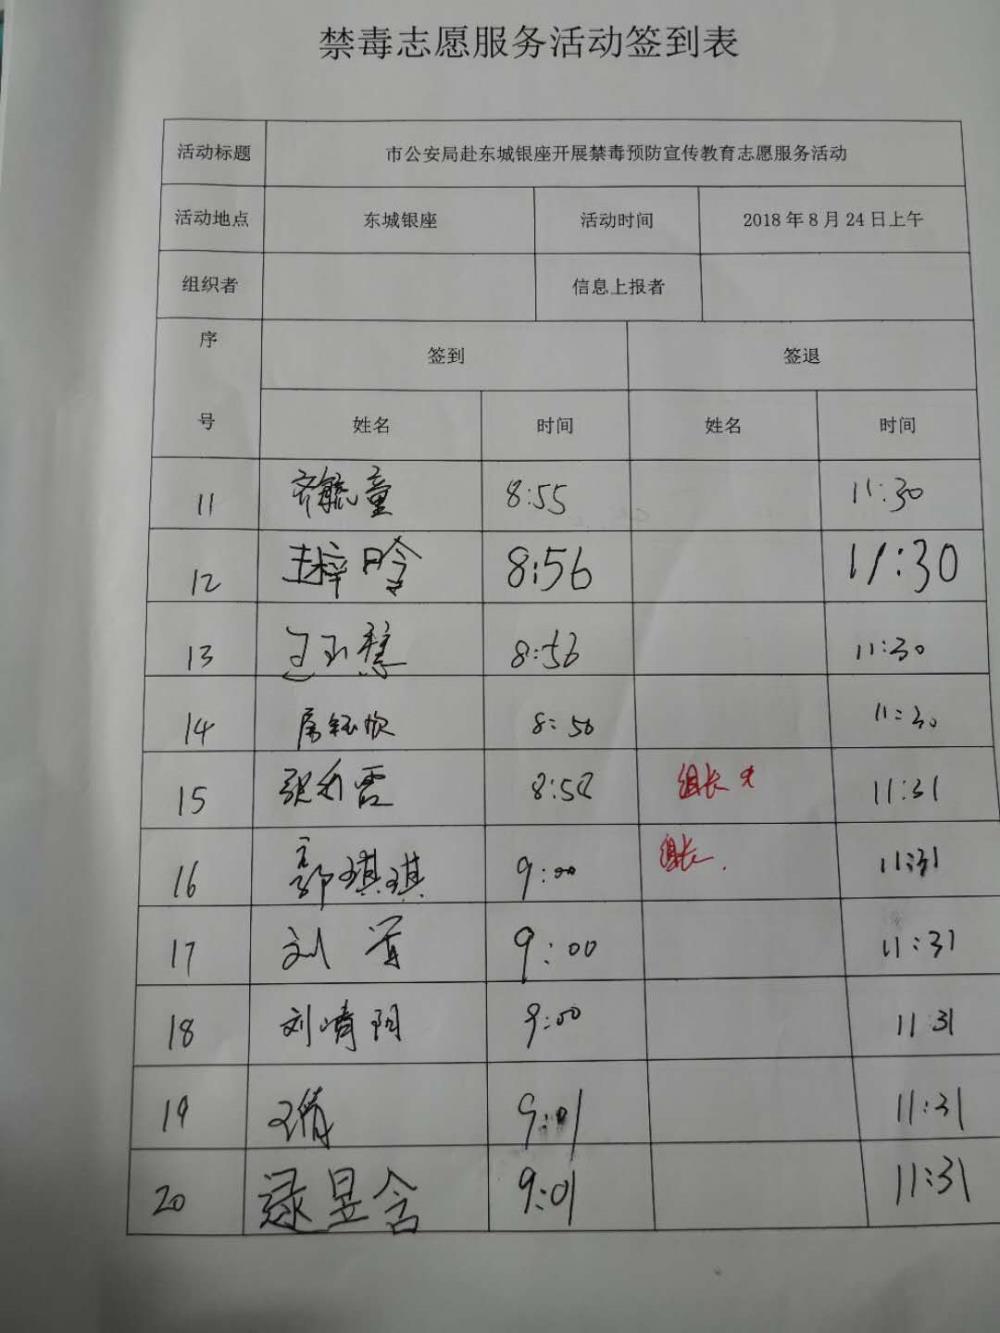 禁毒志愿服务活动签到表
活动标题 市公安局赴东城银座开展禁毒预防宣传教育志愿服务活动
活动地点 东城银座 活动时间 2018年8月24日上午
组织者 信息上报者
序号 签到 签退
姓名 时间 姓名 时间
11 齐毓童 8:55 11:30
12 8:56 11:30
13 8:56 11:30
14 11:30
15 组长 11:31
16 郭琪琪 9:00 组长 11:31
17 刘 9:00 11:31
18 刘晴 9:00 11:31
19 9:01 11:31
20 昱含 9:01 11:31